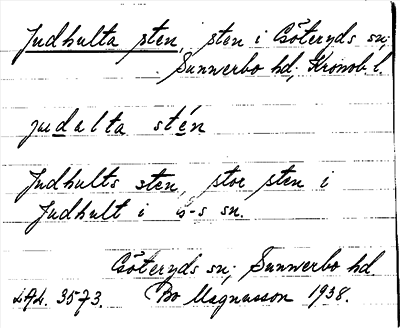 Judhulta sten, sten i Göteryds sn;
Sunnerbo hd, Kronob l.
judalta stén
Judhults sten, stor sten i
Judhult i G-s sn.
Göteryds sn; Sunnerbo hd.
LAL. 3573. Bo Magnusson 1938.